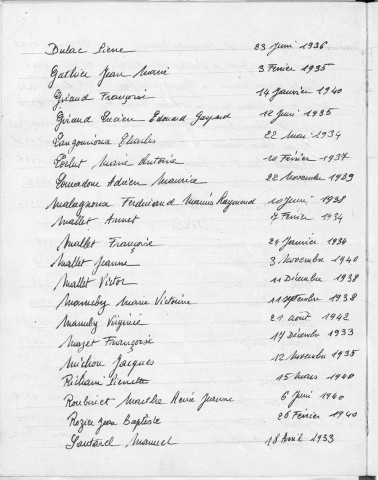 Dulac Pierre 23 Juin 1936
Gathier Jean Marie 3 Fevrier 1935
Giraud Françoise 14 Janvier 1940
Giraud Lucien Edouard Gaspard 12 Juin 1935
Charles 22 Mai 1934
Marie Antoine 20 Février 1937
Adrien Maurice 22 Novembre 1939
Ferdinand Marius Raymond 10 Juin 1938
Mallet Annet 7 Fevrier 1934
Mallet Françoise 24 Janvier 1934
Mallet Jeanne 3 Novembre 1940
Mallet Victor 11 Décembre 1938
Marie Victorine 11 septembre 1938
Virginie 21 août 1942
Mazet Françoise 17 Décembre 1933
Michon Jacques 12 Novembre 1935
Richard Pierrette 15 Mars 1940
Marthe Renée Jeanne 6 Juin 1940
Rozier Jean Baptiste 26 Février 1940
Manuel 18 Avril 1933